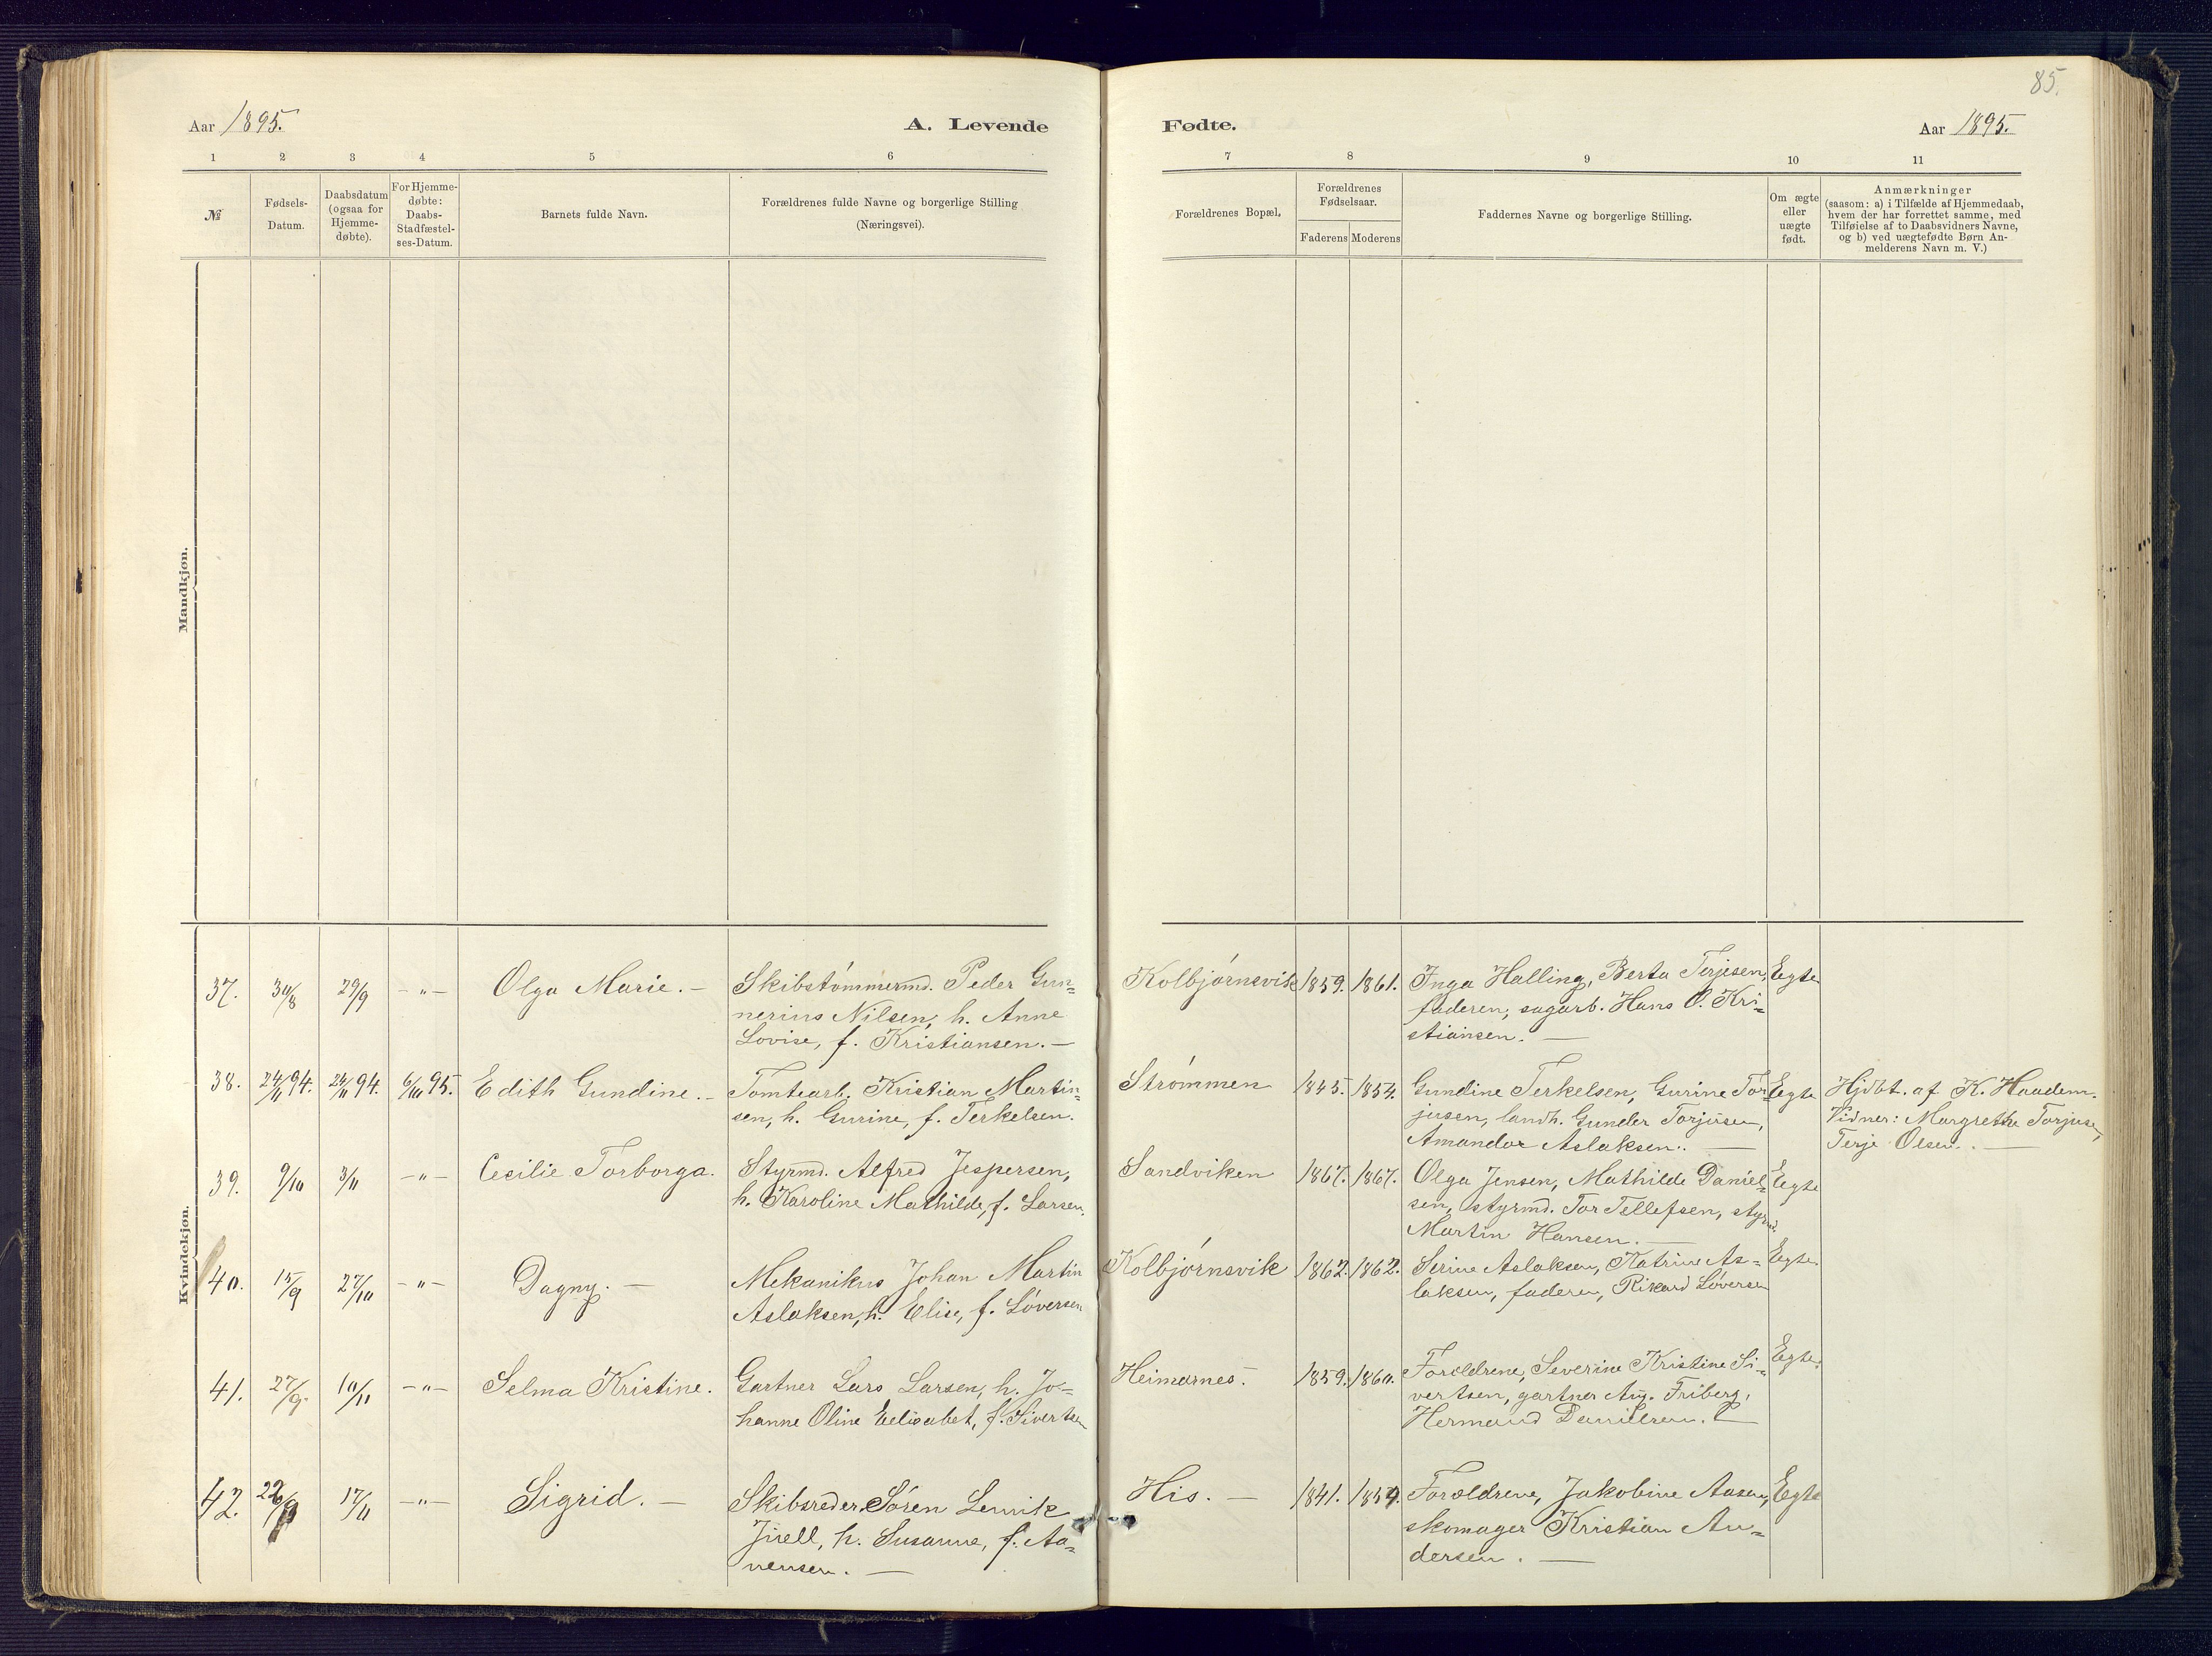 85.
Aar 1895.
A. Levende
Fødte.
Aar 1895.
1 2 3 4 5 6 7 8 9 10 11
№
Fødsels-
Datum.
Daabsdatum
(ogsaa for
Hjemme-
døbte).
For Hjemme-
døbte:
Daabs-
Stadfæstel-
ses-Datum.
Barnets fulde Navn.
Forældrenes fulde Navne og borgerlige Stilling
(Næringsvei).
Forældrenes Bopæl.
Forældrenes
Fødselsaar.
Faderens Moderens
Faddernes Navne og borgerlige Stilling.
Om ægte
eller
uægte
født.
Anmærkninger
(saasom: a) i Tilfælde af Hjemmedaab,
hvem der har forrettet samme, med
Tilføielse af to Daabsvidners Navne,
og b) ved uægtefødte Børn An-
melderens Navn m. V.)
Mandkjøn.
Kvindekjøn.
37. 30/8 29/9 -„- Olga Marie. -
Skibstømmermd. Peder Gun=
nerius Nilsen, h. Anne
Lovise, f. Kristiansen. -
Kolbjørnsvik 1859. 1861.
Inga Halling, Berta Terjesen,
faderen, sagarb. Hans O. Kri=
stiansen. -
Egte
38. 24/11 94. 24/11 94. 6/10 95. Edith Gundine. -
Tomtearb. Kristian Martin=
sen, h. Gurine, f. Terkelsen.
Strømmen 1845. 1854.
Gundine Terkelsen, Gurine Tor=
jusen, landh. Gunder Torjusen,
Amandor Aslaksen. -
Egte
Hjdbt. af K. Haadem.
Vidner: Margrethe Torjusen,
Terje Olsen. -
39. 9/10 3/11 -„- Cecilie Torborga.
Styrmd. Alfred Jespersen,
h. Karoline Mathilde, f. Larsen.
Sandviken 1867. 1867.
Olga Jensen, Mathilde Daniel=
sen, styrmd. Tor Tellefsen, styrmd.
Martin Hansen. -
Egte
40. 15/9 27/10 -„- Dagny. -
Mekanikus Johan Martin
Aslaksen, h. Elise, f. Løversen
Kolbjørnsvik 1862. 1862.
Serine Aslaksen, Katrine As=
laksen, faderen, Rikard Løversen
Egte.
41. 27/9. 10/11 -„- Selma Kristine.
Gartner Lars Larsen, h. Jo=
hanne Oline Eelisabet, f. Sivertsen
Heimarnes. 1859. 1860.
Forældrene, Severine Kristine Si=
vertsen, gartner Aug. Friberg,
Hermand Danielsen.
Egte.
42. 22/9 17/11 -„- Sigrid. -
Skibsreder Søren Lenvik
Jirell, h. Susanne, f. Aa=
nensen. -
His. - 1841. 1854.
Forældrene, Jakobine Aasen,
skomager Kristian An=
dersen. -
Egte